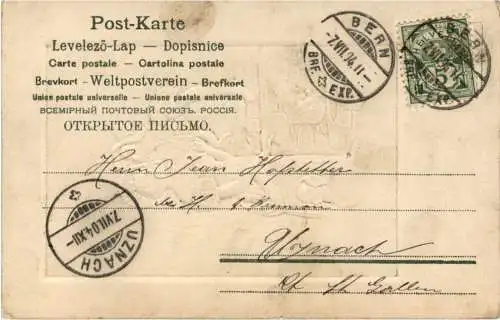 Post-Karte
Levelezö-Lap — Dopisnice
Carte postale — Cartolina postale
Brevkort - Weltpostverein - Brefkort
Union postale universelle — Unione postale universale
ВСЕМІРНЫЙ ПОЧТОВЫЙ СОЮЗЪ. РОССІЯ.
ОТКРЫТОЕ ПИСЬМО.
BERN
7.VII.04.11-
BRF. EXP.
5
Herrn Jean Hofstetter
Uznach
Kt. St. Gallen
UZNACH
7.VII.04.XII-